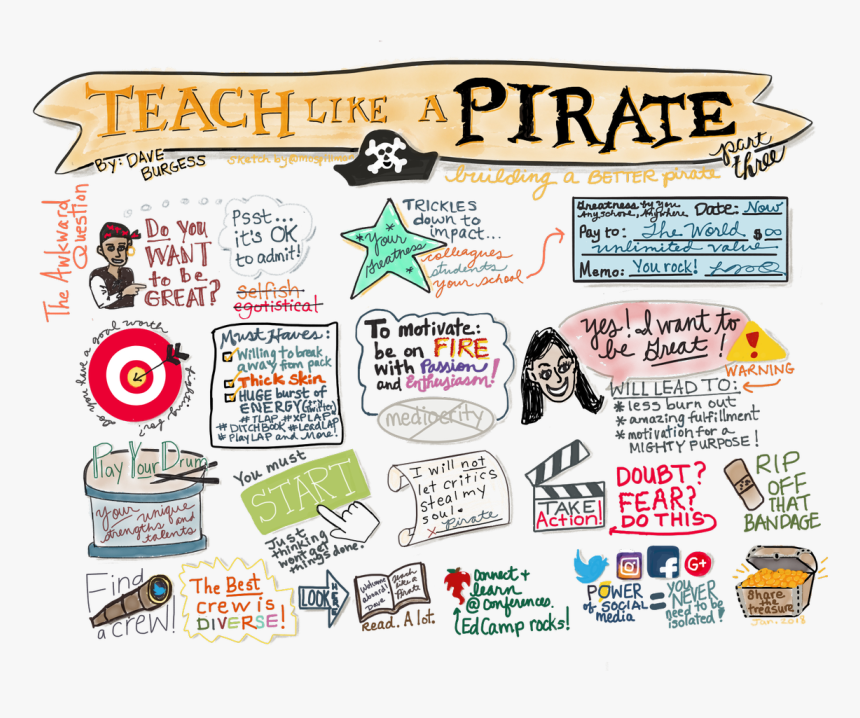 TEACH LIKE A PIRATE
BY: DAVE
BURGESS
sketch by:
part
three
building a BETTER pirate
The Awkward
Question
Do you
WANT
to be
GREAT?
Psst...
it's OK
to admit!
selfish
egotistical
Your
Greatness
TRICKLES
down to
impact...
colleagues
students
your school
Greatness by You
Any school, Anywhere
Date: Now
Pay to: The World $∞
unlimited value
Memo: You rock!
do you have a goal worth
fighting for?
Must Haves:
Willing to break
away from pack
Thick skin
HUGE burst of
ENERGY (Twitter)
#TLAP #XPLAP
#DITCHBOOK #LeadLAP
#PlayLAP and More!
To motivate:
be on FIRE
with Passion
and Enthusiasm!
mediocrity
Yes! I want to
be Great!
WARNING
WILL LEAD TO:
* less burn out
* amazing fulfillment
* motivation for a
MIGHTY PURPOSE!
Play Your Drum
Your unique
strengths and
talents
You must
START
Just
thinking
won't get
things done.
I will not
let critics
steal my
soul.
x Pirate
TAKE
Action!
DOUBT?
FEAR?
DO THIS
RIP
OFF
THAT
BANDAGE
Find
a crew!
The Best
crew is
DIVERSE!
LOOK
Welcome
aboard!
Dave
Teach
Like a
Pirate
Read. A lot.
Connect +
learn
@ conferences.
EdCamp rocks!
G+
POWER
of social
media
=
YOU
NEVER
need to be
isolated!
Share
the
treasure
Jan. 2018